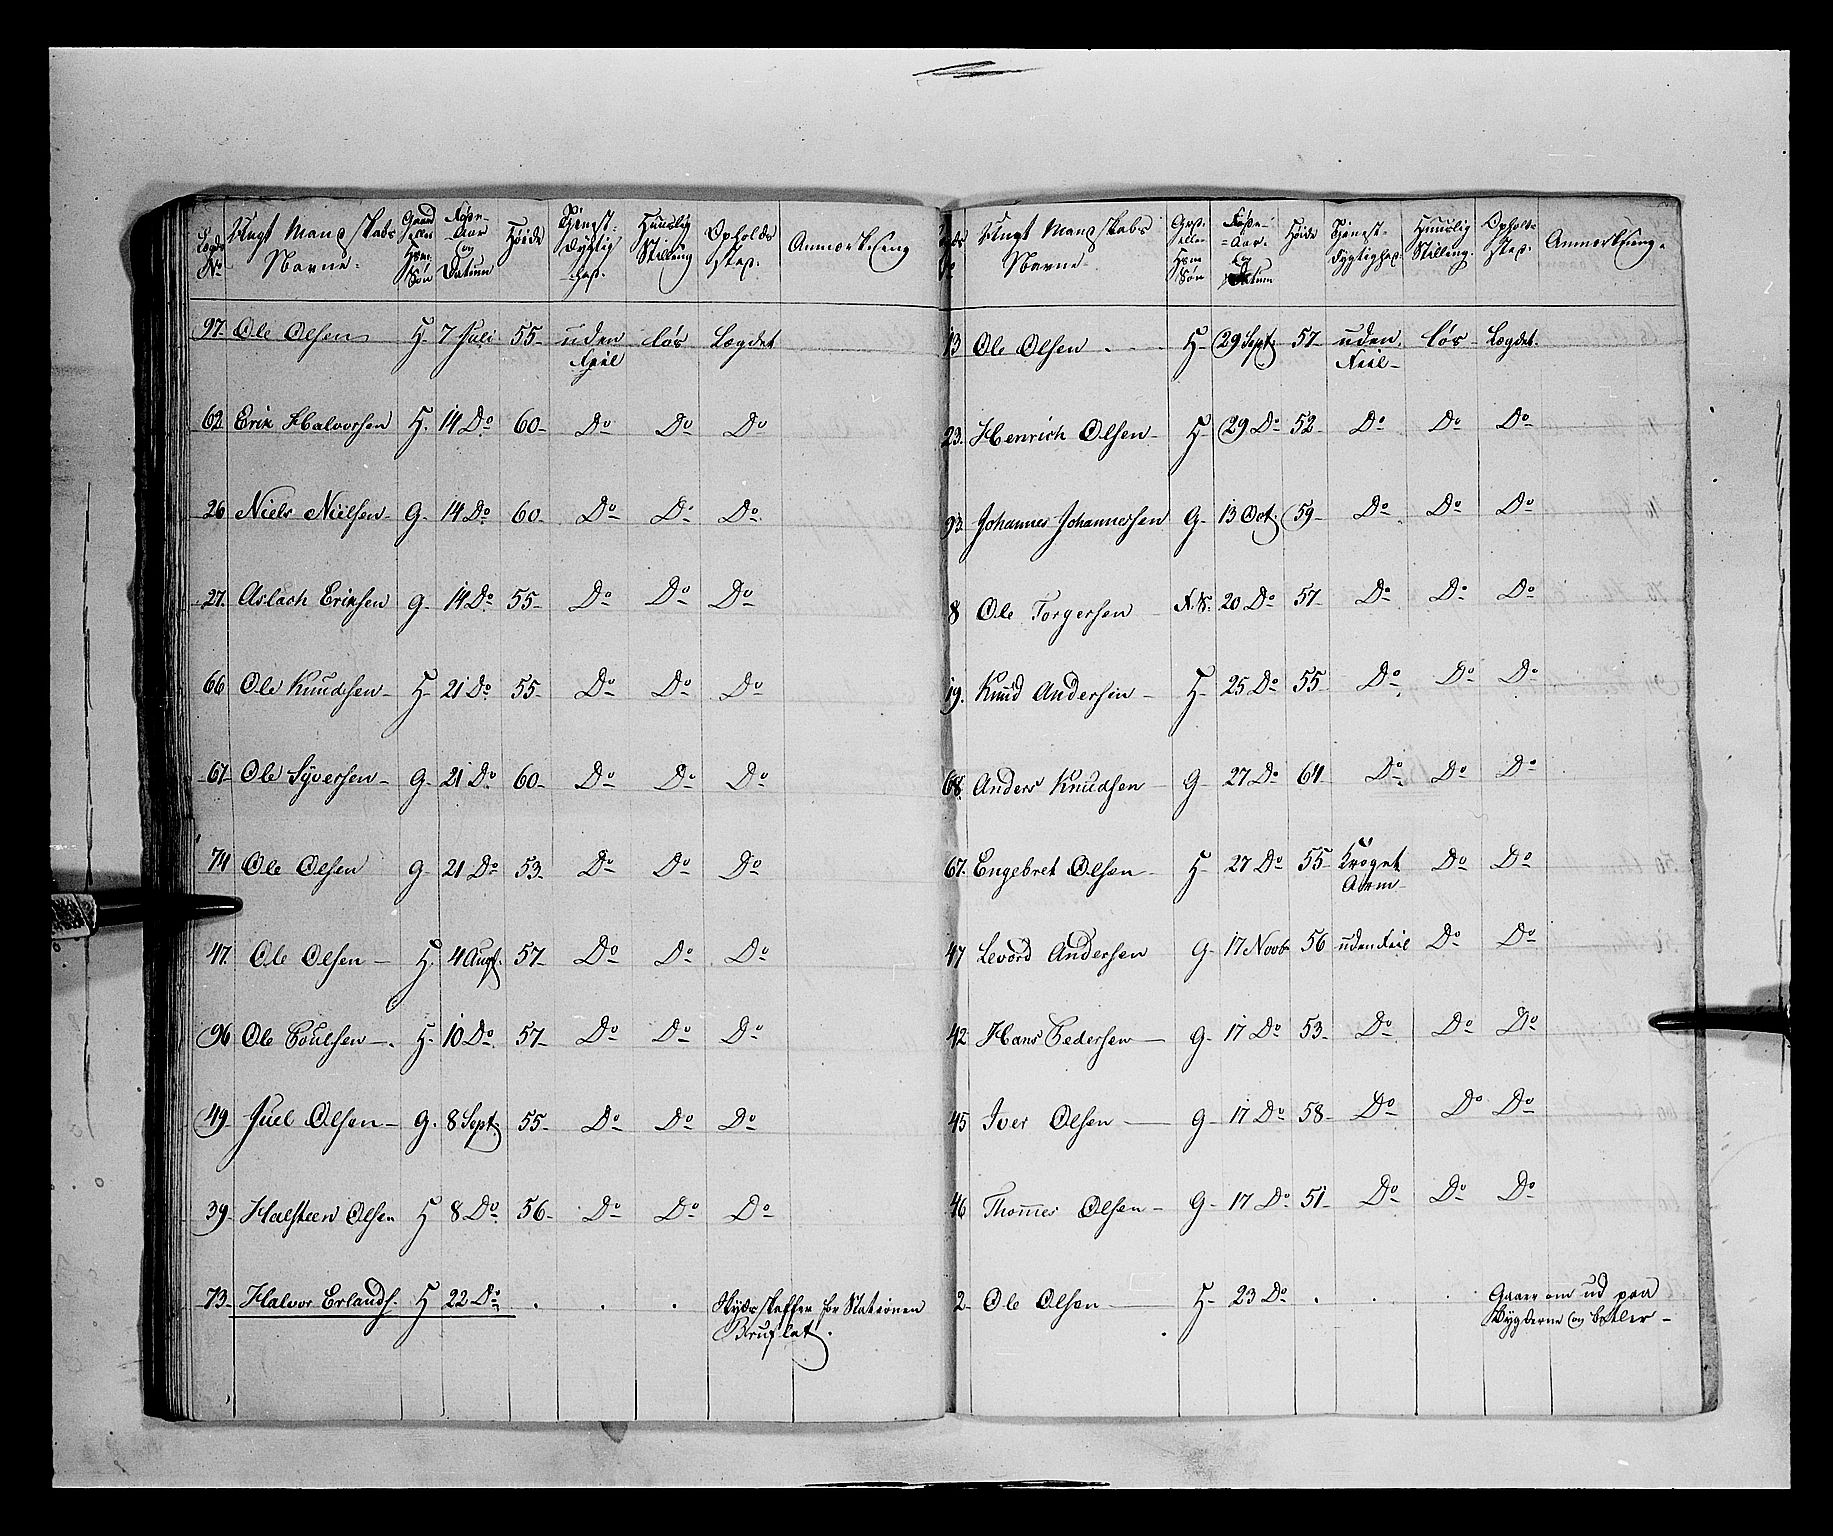 Lægds No | Ungt Mandskabs Navne. | Gaard eller Hsm. Søn | Føde-Aar og Datum | Høide | Tjenest-dygtighed. | Huuslig Stilling | Opholds sted. | Anmærkning
97. Ole Olsen H. 7 Juli 55- uden Feil lös Lægdet
62 Erik Halvorsen H. 14 Do 60- Do Do Do
26 Niels Nielsen- G- 14 Do 60- Do Do Do
27. Aslach Eriksen G- 14 Do 55- Do Do Do
66 Ole Knudsen- H- 21 Do 55- Do Do Do
67- Ole Syversen- G- 21 Do 60- Do Do Do
74 Ole Olsen G- 21 Do 53- Do Do Do
47. Ole Olsen- H. 4 Augt. 57- Do Do Do
96 Ole Poulsen-. H- 10 Do 57- Do Do Do
49- Juel Olsen- G. 8 Sept. 55- Do Do Do
39- Halsteen Olsen H 8 Do 56- Do Do Do
73- Halvor Erlands. H 22 Do . . . Skydsskaffer for Stationen
Bruflat.
Ungt Mandskabs Navne | Grd. eller Hsm Søn | Føde-Aar. og Datum | Høide | Tjenest-dygtighed. | Huuslig Stilling. | Opholds sted. | Anmærkning.
13 Ole Olsen H- 29 Sept. 57- uden Feil- lös- Lægdet.
23. Henrich Olsen- H- 29 Do 52- Do Do Do
93. Johannes Johannessen G- 13 Oct. 59- Do Do Do
8 Ole Torgersen 20 Do 57- Do Do Do
19. Knud Andersen- H- 25 Do 55- Do Do Do
68. Anders Knudsen G- 27 Do 64- Do Do Do
67. Engebret Olsen- H- 27 Do 55- Kroget Arm- Do Do
47 Levord Andersen G- 17 Novb 56 uden Feil Do Do
42 Hans Pedersen- G- 17 Do 53- Do Do Do
45 Iver Olsen- G- 17 Do 58- Do Do Do
46 Thomes Olsen- G- 17 Do 51- Do Do Do
2- Ole Olsen- H- 23 Do . . . Gaaer om ud paa
Bygderne og betler-